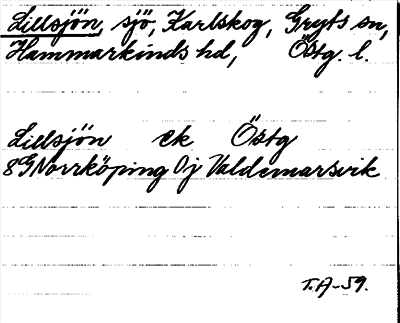 Lillsjön, sjö, Karlskog, Gryts sn,
Hammarkinds hd, Östg. l.
Lillsjön ek Östg
8G Norrköping 0j Valdemarsvik
T.A-59.